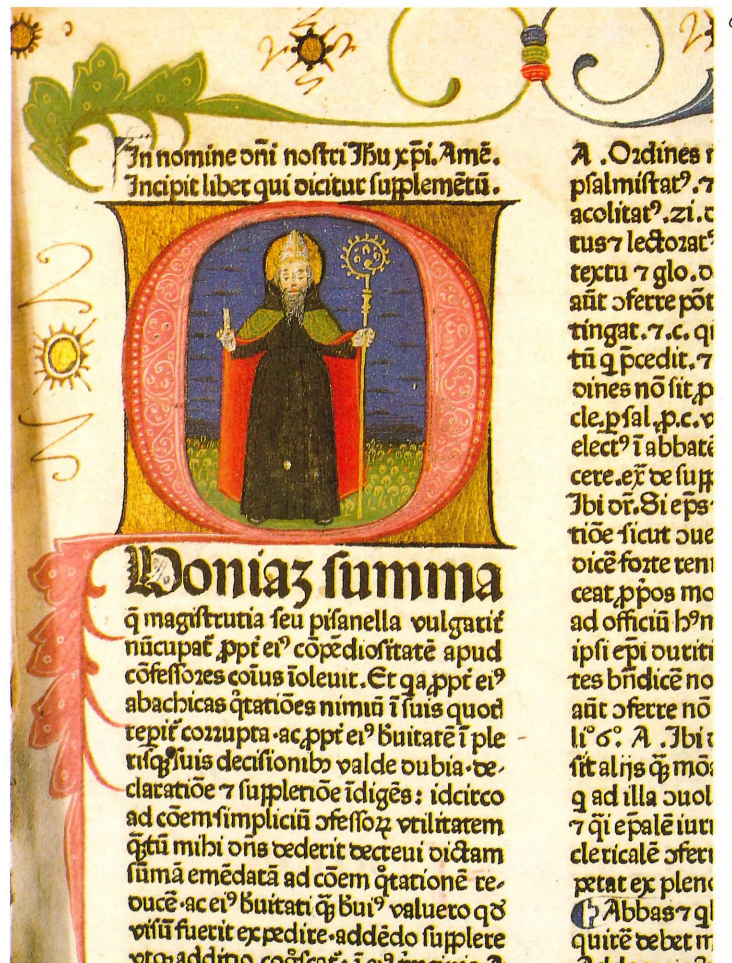 In nomine dñi nostri Jhu xp̄i. Amē.
Incipit liber qui dicitur supplemētū.
Qoniaʒ summa
q̄ magistrutia seu pisanella vulgarit̄
nūcupat̄ ꝓpt̄ ei⁹ cōpēdiositatē apud
cōfessores cōius īoleuit. Et qa ꝓpt̄ ei⁹
abachicas q̊tatiōes nimiū ī suis quot
repit̄ corrupta·ac ꝓpt̄ ei⁹ buitatē ī ple
risqꝫ suis decisionibꝫ valde dubia·de-
claratiōe ⁊ suppletiōe īdigēs: idcirco
ad cōem simpliciū ↄfessoꝝ vtilitatem
q̄tū mihi dñs dederit decreui dictam
sūmā emēdatā ad cōem q̊tationē re-
ducē·ac ei⁹ buitati q̄ꝫ bui⁹ valuero qď
visū fuerit expedire·addēdo supplere
A .Ordines
psalmistat⁹.⁊
acolitat⁹.zi.
tus⁊ lectorat⁹
textu ⁊ glo.
aūt ↄferre pōt
tingat.⁊.c. qi
tū q p̄cedit.⁊
dines nō sit ꝓ
cle.ꝑ sal.ꝓ.c.v
elect⁹ ī abbatē
cere.ex̄ de supp
Ibi dr̄.Si ep̄s
tiōe sicut ↄue
dicē forte ten
ceat ꝓpos mo
ad officiū h⁹m
ipsi ep̄i
tes bn̄dicē no
aūt ↄferre nō
li° 6° A .Ibi
sit alijs q̄ꝫ mō
q ad illa ↄuol
⁊ q̄i ep̄alē iur
clericalē ↄfer
petat ex plen
Abbas⁊ q
quirē debet m